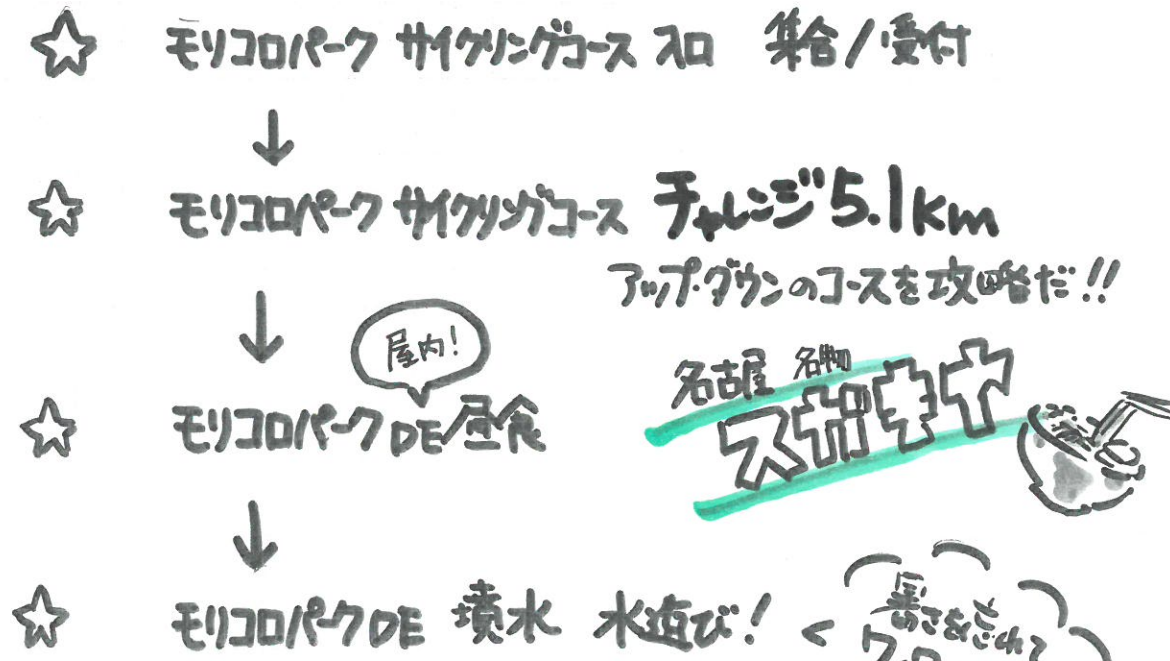 モリコロパーク サイクリングコース 入口 集合/受付
モリコロパーク サイクリングコース チャレンジ5.1km
アップ・ダウンのコースを攻略だ!!
屋内!
モリコロパークDE昼食
名古屋 名物
スガキヤ
モリコロパークDE 噴水 水遊び!
暑さを忘れて